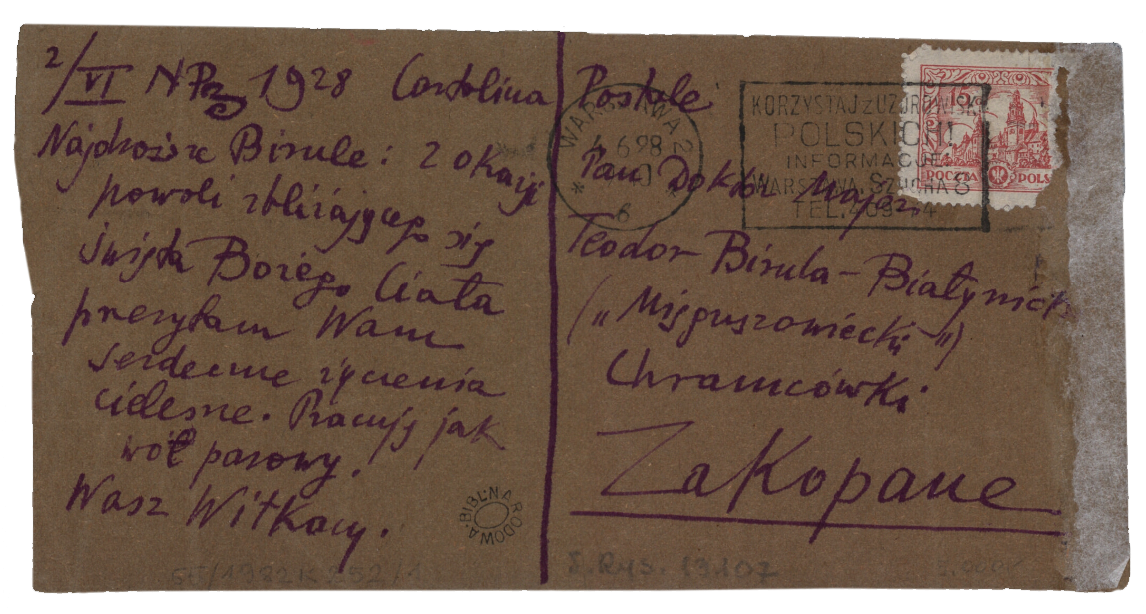 2/VI NPπ 1928 Cartolina Postale
Najdroższe Birule: z okazji
powoli zbliżającego się
święta Bożego Ciała
przesyłam Wam
serdeczne życzenia
cielesne. Pracuję jak
wół parowy.
Wasz Witkacy.
Pan Doktor Major
Teodor Birula-Białynicki
(„Mięguszowiecki")
Chramcówki
Zakopane
WARSZAWA 2
4.6.28
6
KORZYSTAJ z UZDROWISK
POLSKICH!
INFORMACJE:
WARSZAWA, SZUCHA 8
TEL.
15
POCZTA POLSKA
BIBL. NARODOWA